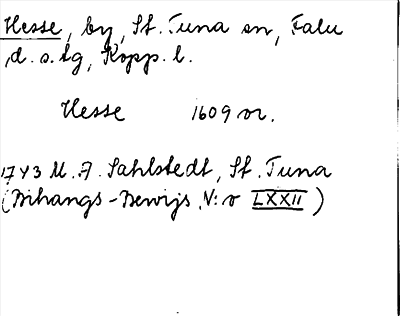 Hesse, by, St. Tuna sn, Falu
d.s.tg, Kopp. l.
Hesse 1609 or.
1743 U. A. Sahlstedt, St. Tuna
(Bihangs-Bewijs N:o LXXII)